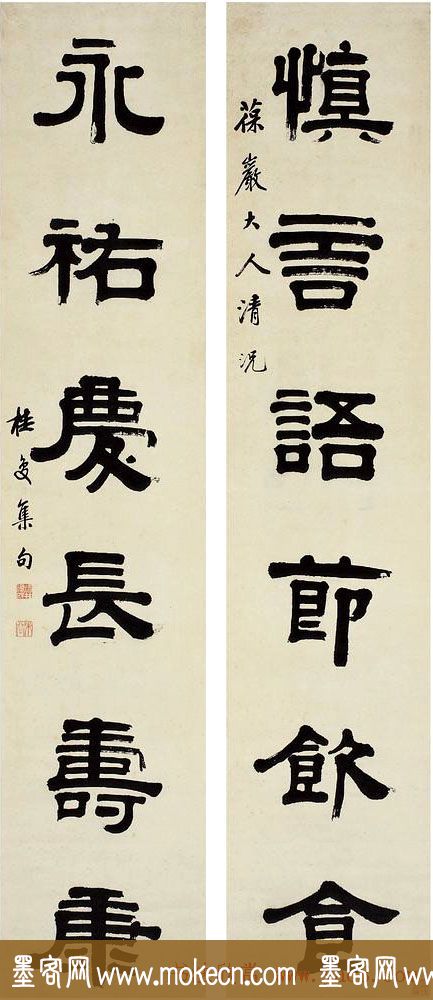 慎言語節飲食
葆巖大人清況
永祐慶長壽康
桂集句
墨客网 www.mokecn.com 墨客网